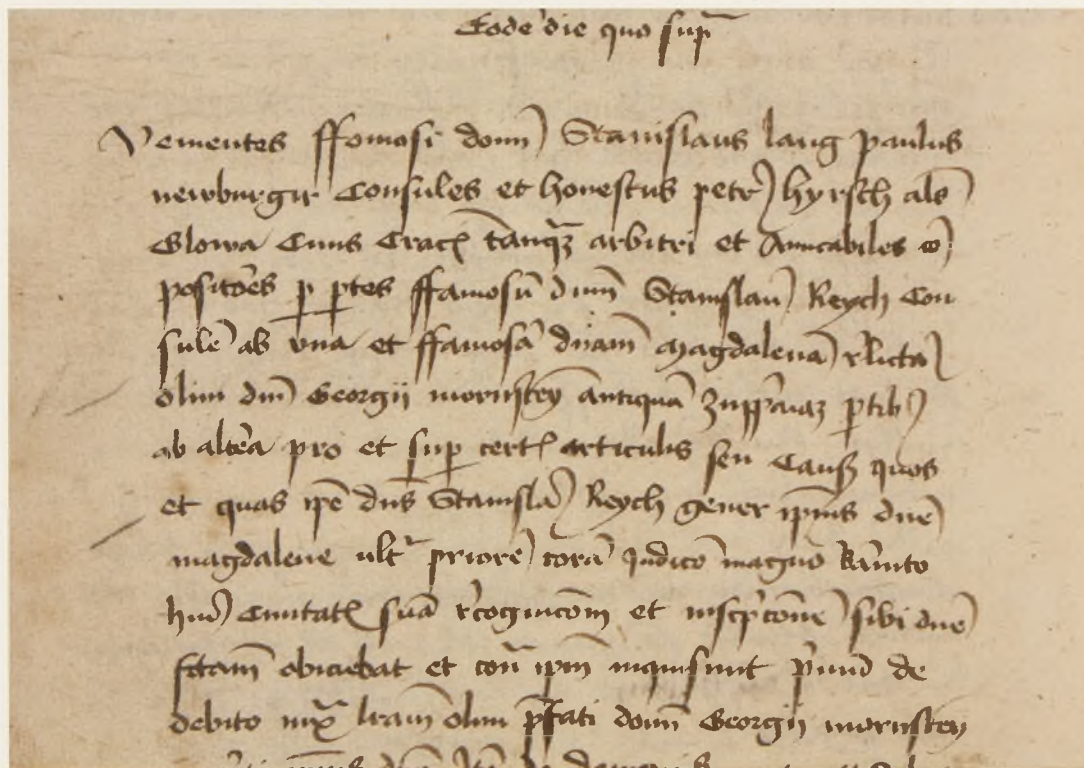 Eodē die quo sup̄
Venientes ffomosi domī Stanislaus lang paulus
newburger Consules et honestus petr̄ hyrsch als̄
Glowa Ciuis Crac̄ tanq̄ȝ arbitri et Amicabiles cō
positōēs p̱ p̱tes ffamosū dnm̄ Stanislaū Reych Con
sulē ab vna et ffamosā dn̄am magdalenā rͤlictā
olim dnī Georgij mornsteyn antiquā zupp̄ariaȝ p̱tib̄
ab altēa pro et sup̱ cert̄ articulis seu Caus̄ quos
et quas ip̄e dn̄s Stanisla᷒ Reych gener ip̄ius dn̄e
magdalene vlt̄ priorē corā Judicō magnō bān̄ito
hui᷒ Ciuitat̄ suā rͤcognicōm̄ et inscp̄cōnē sibi dn̄e
f̄ctam̄ obiciebat et cōn̄ ip̄m inquisiuit p̄mū de
debito iux̄ lr̄am olim p̄fati domī Georgij mornsteyn